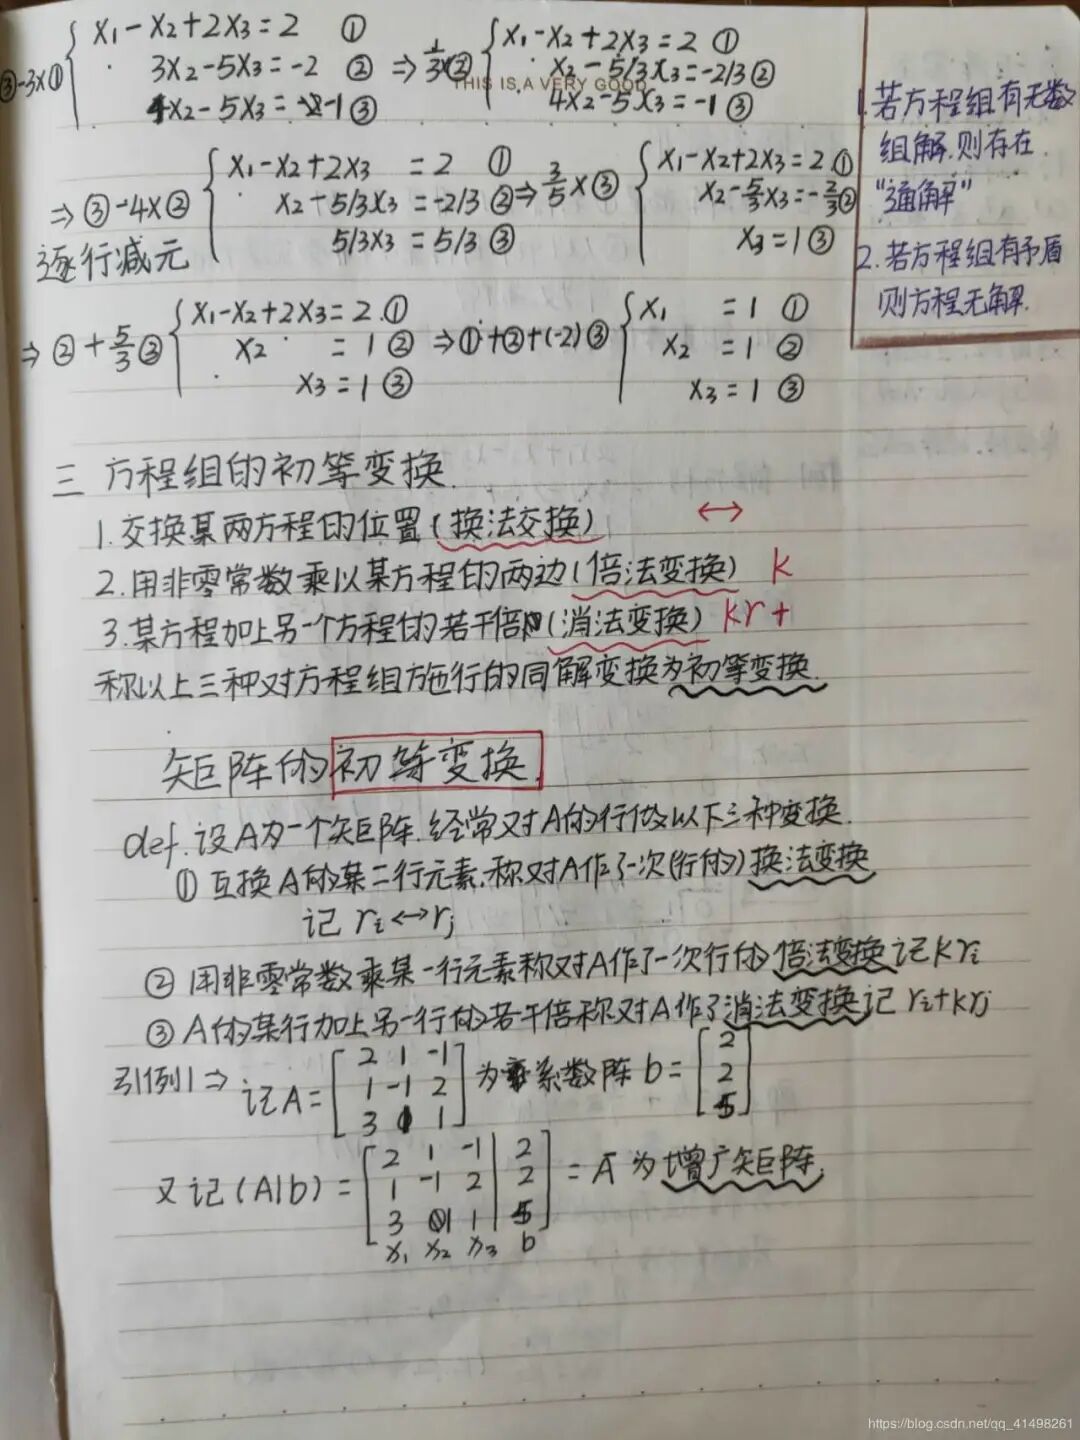 ③-3×① { x₁-x₂+2x₃=2 ① { x₁-x₂+2x₃=2 ①
3x₂-5x₃=-2 ② ⇒ 1/3×② x₂-5/3x₃=-2/3 ②
THIS IS A VERY GOOD
4x₂-5x₃=-1 ③ 4x₂-5x₃=-1 ③
1. 若方程组有无数
组解.则存在
"通解"
2. 若方程组有矛盾
则方程无解.
⇒ ③-4×② { x₁-x₂+2x₃ =2 ① { x₁-x₂+2x₃=2 ①
x₂-5/3x₃=-2/3 ② ⇒ 3/5×③ x₂-5/3x₃=-2/3 ②
5/3x₃=5/3 ③ x₃=1 ③
逐行减元
⇒ ②+5/3③ { x₁-x₂+2x₃=2 ① { x₁ =1 ①
x₂ =1 ② ⇒ ①+②+(-2)③ x₂ =1 ②
x₃=1 ③ x₃=1 ③
三 方程组的初等变换.
1.交换某两方程的位置(换法交换) ↔
2.用非零常数乘以某方程的两边(倍法变换) k
3.某方程加上另一个方程的若干倍(消法变换) kr+
称以上三种对方程组施行的同解变换为初等变换.
矩阵的初等变换.
def.设A为一个矩阵.经常对A的行做以下三种变换.
① 互换A的某二行元素.称对A作了一次(行的)换法变换
记 rᵢ↔rⱼ
② 用非零常数乘某一行元素称对A作了一次行的倍法变换记krᵢ
③ A的某行加上另一行的若干倍称对A作了消法变换记 rᵢ+krⱼ
引例1⇒ 记A= [ 2 1 -1 ] 为系数阵 b= [ 2 ]
[ 1 -1 2 ] [ 2 ]
[ 3 1 ] [ 5 ]
又记(A|b)= [ 2 1 -1 | 2 ] =Ā 为增广矩阵.
[ 1 -1 2 | 2 ]
[ 3 1 1 | 5 ]
x₁ x₂ x₃ b
https://blog.csdn.net/qq_41498261